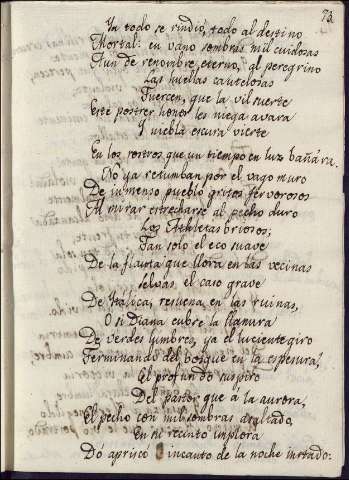 73.
Ya todo se rindió, todo al destino
Mortal: en vano sombras mil cuidosas
Aun de renombre eterno, al peregrino
Las huellas cautelosas
Tuercen, que la vil suerte
Este postrer honor les niega avara
I niebla escura vierte
En los rostros que un tiempo en luz bañára.
No ya retumban por el vago muro
De inmenso pueblo gritos fervorosos
Al mirar estrecharse al pecho duro
Los Athletas briosos;
Tan solo el eco suave
De la flauta que llora en las vecinas
selvas, el caso grave
De Itálica, resuena en las ruinas,
O si Diana cubre la llanura
De verdes lumbres, ya el luciente giro
Terminando del bosque en la espesura,
El profundo suspiro
Del pastor que a la aurora,
El pecho con mil sombras asaltado,
En su recinto implora
Dó aprisco incauto de la noche instado.